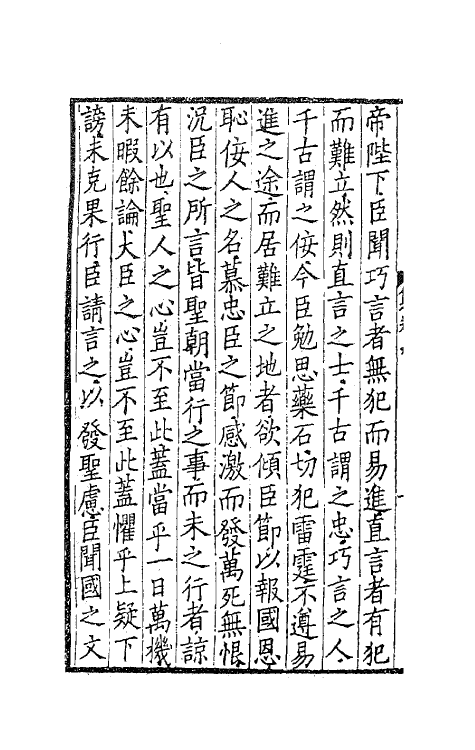 帝陛下臣聞巧言者無犯而易進直言者有犯
而難立然則直言之士千古謂之忠巧言之人
千古謂之佞今臣勉思藥石切犯雷霆不遵易
進之途而居難立之地者欲傾臣節以報國恩
恥佞人之名慕忠臣之節感激而發萬死無恨
況臣之所言皆聖朝當行之事而未之行者諒
有以也聖人之心豈不至此蓋當乎一日萬機
未暇餘論大臣之心豈不至此蓋懼乎上疑下
謗未克果行臣請言之以發聖慮臣聞國之文